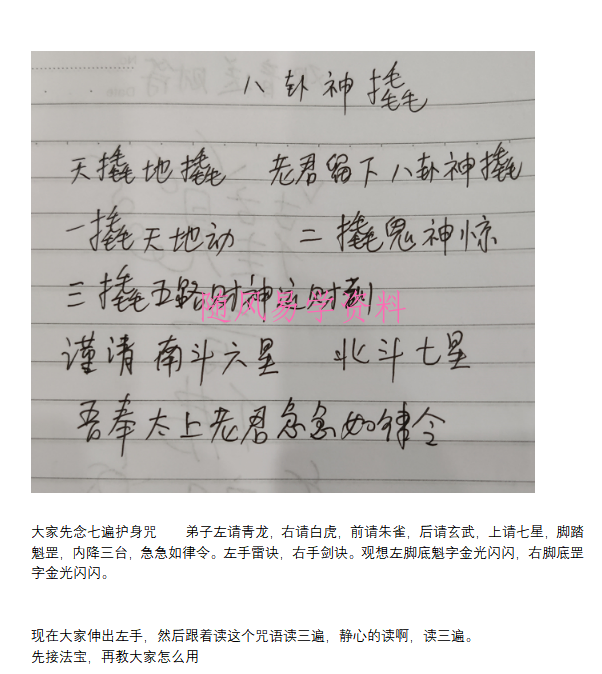 八卦神撬
天撬地撬 老君留下八卦神撬
一撬天地动 二撬鬼神惊
三撬五路财神这时到
随风易学资料
谨清南斗六星 北斗七星
吾奉太上老君急急如律令
大家先念七遍护身咒 弟子左请青龙，右请白虎，前请朱雀，后请玄武，上请七星，脚踏
魁罡，内降三台，急急如律令。左手雷诀，右手剑诀。观想左脚底魁字金光闪闪，右脚底罡
字金光闪闪。
现在大家伸出左手，然后跟着读这个咒语读三遍，静心的读啊，读三遍。
先接法宝，再教大家怎么用